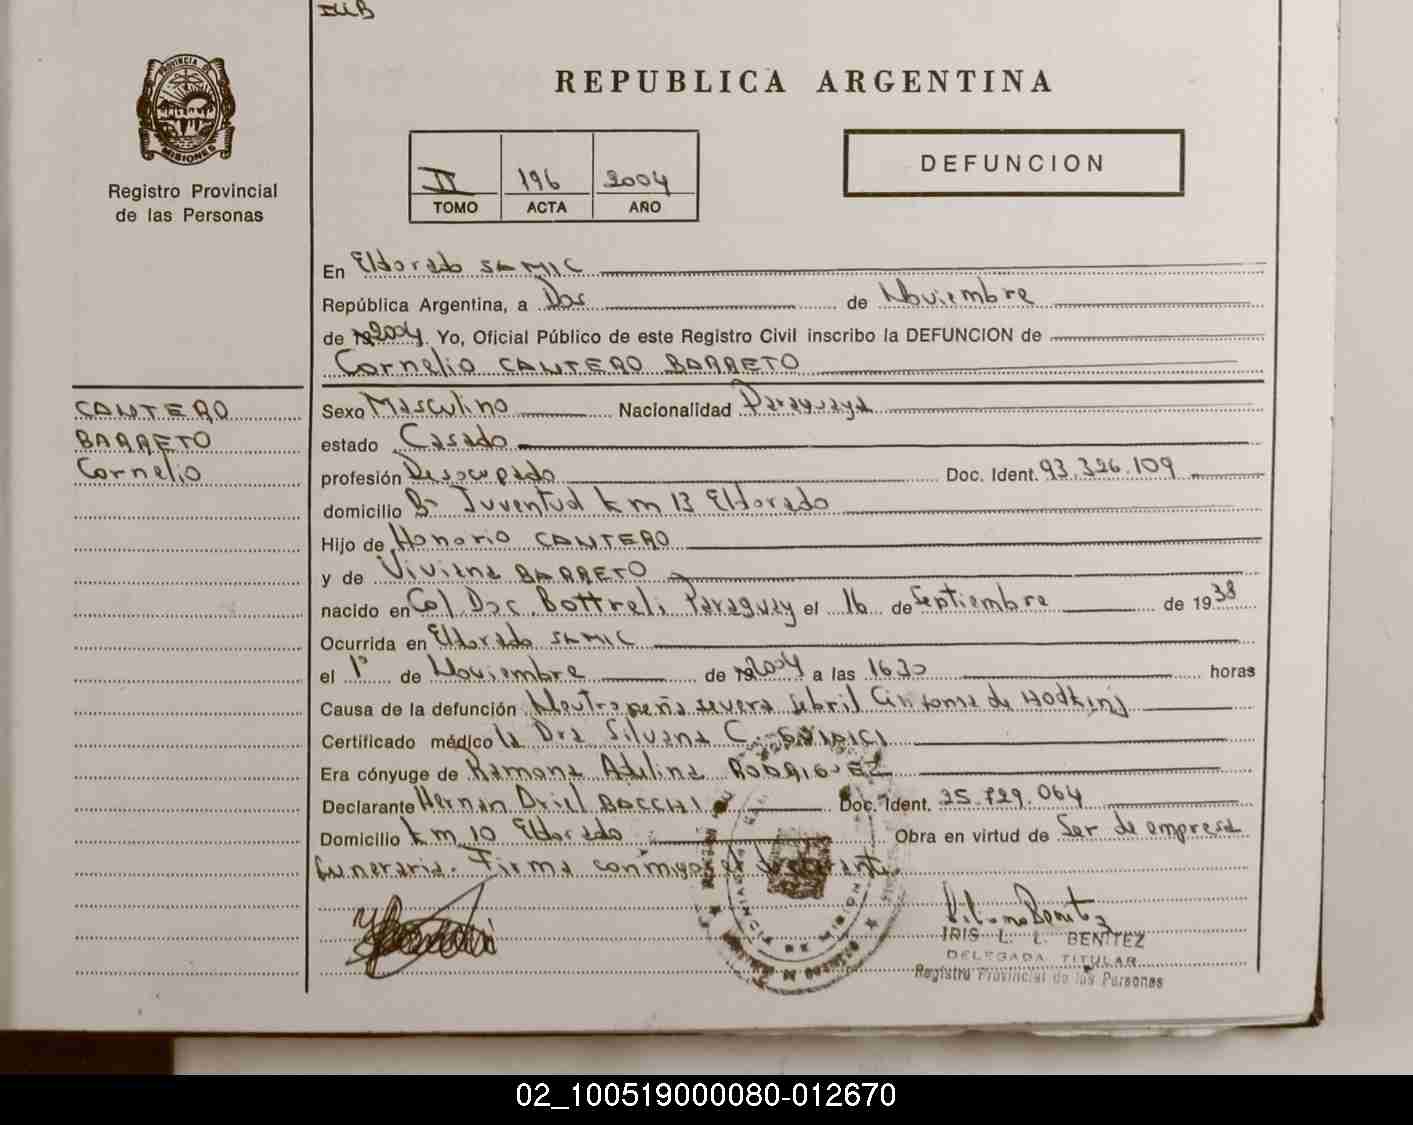 PROVINCIA DE
MISIONES
Registro Provincial
de las Personas
REPUBLICA ARGENTINA
II 196 2004
TOMO ACTA AÑO
DEFUNCION
En Eldorado SAMIC
República Argentina, a Dos de Noviembre
de 2004. Yo, Oficial Público de este Registro Civil inscribo la DEFUNCION de
Cornelio CANTERO BARRETO
CANTERO
BARRETO
Cornelio
Sexo Masculino Nacionalidad Paraguaya
estado Casado
profesión Desocupado Doc. Ident. 93.326.109
domicilio B° Juventud km 13 Eldorado
Hijo de Honorio CANTERO
y de Viviana BARRETO
nacido en Col. Doc. Bottreli Paraguay el 16 de Septiembre de 1938
Ocurrida en Eldorado SAMIC
el 1° de Noviembre de 2004 a las 1630 horas
Causa de la defunción Neutropeña severa febril Linfoma de Hodking
Certificado médico la Dra Silvana C.
Era cónyuge de Ramona Adelina RODRIGUEZ
Declarante Hernán Oriel BACCHI Doc. Ident. 25.729.064
Domicilio km 10 Eldorado Obra en virtud de Ser de empresa
funeraria. Firma conmigo el declarante
IRIS L. L. BENITEZ
DELEGADA TITULAR
Registro Provincial de las Personas
02_100519000080-012670